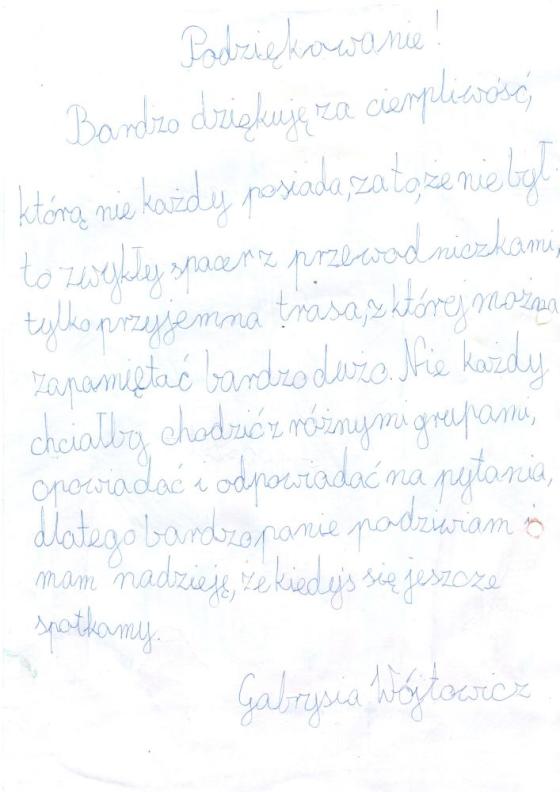 Podziękowanie!
Bardzo dziękuję za cierpliwość,
którą nie każdy posiada, za to, że nie był
to zwykłej spacer z przewodniczkami,
tylko przyjemna trasa, z której można
zapamiętać bardzo dużo. Nie każdy
chciałby chodzić z różnymi grupami,
opowiadać i odpowiadać na pytania,
dlatego bardzo panie podziwiam i
mam nadzieję, że kiedyś się jeszcze
spotkamy.
Gabrysia Wójtowicz